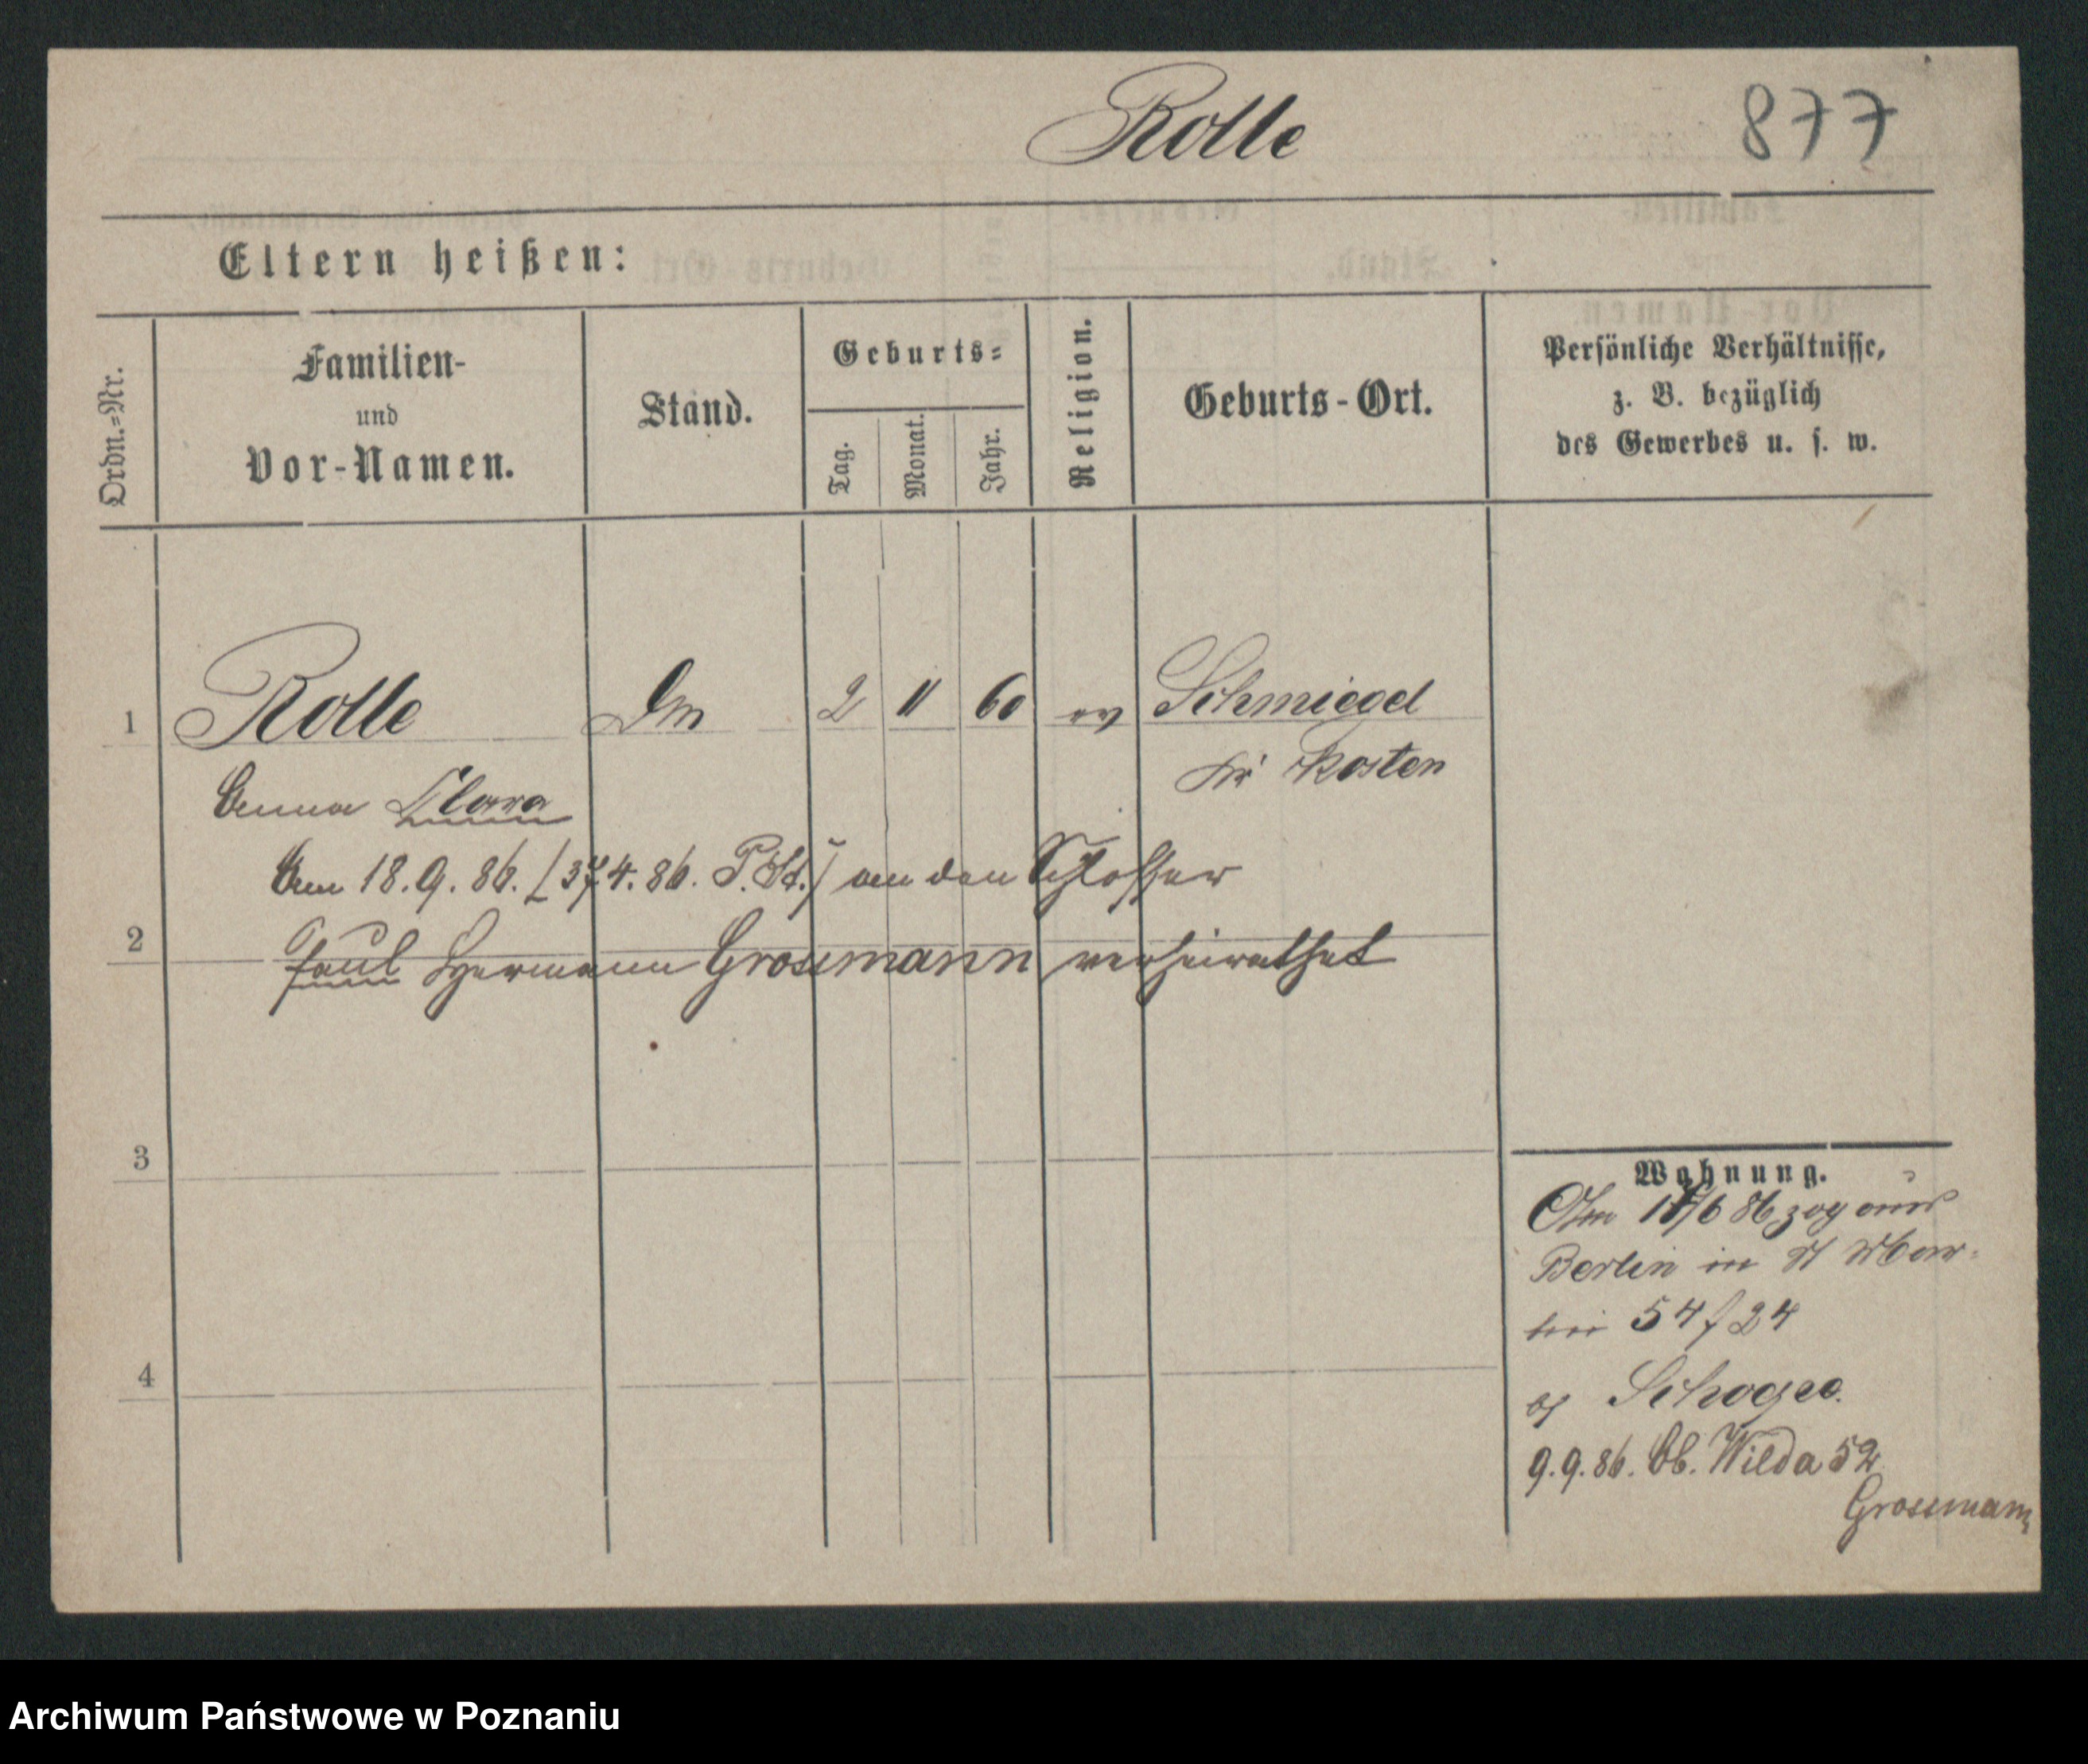 Rolle
877
Eltern heißen:
Ordn.=Nr.
Familien-
und
Vor-Namen.
Stand.
Geburts=
Tag.
Monat.
Jahr.
Religion.
Geburts-Ort.
Persönliche Verhältnisse,
z. B. bezüglich
des Gewerbes u. s. w.
1 Rolle 2 11 60 ev Schmiegel
Kr Kosten
Anna Clara
Am 18.9.86. 4.86. P. St.) an den Schlosser
2
Paul Hermann Grossmann verheirathet
3
4
Wohnung.
Am 6 86 zog aus
Berlin in St Mar-
tin 54 f 24
bj
9.9.86. Ob. Wilda 52
Grossmann
Archiwum Państwowe w Poznaniu